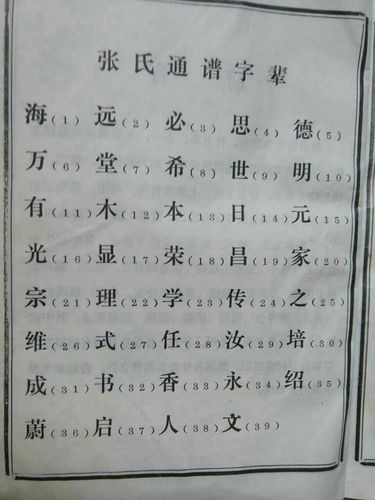 张氏通谱字辈
海(1) 远(2) 必(3) 思(4) 德(5)
万(6) 堂(7) 希(8) 世(9) 明(10)
有(11) 木(12) 本(13) 日(14) 元(15)
光(16) 显(17) 荣(18) 昌(19) 家(20)
宗(21) 理(22) 学(23) 传(24) 之(25)
维(26) 式(27) 任(28) 汝(29) 培(30)
成(31) 书(32) 香(33) 永(34) 绍(35)
蔚(36) 启(37) 人(38) 文(39)